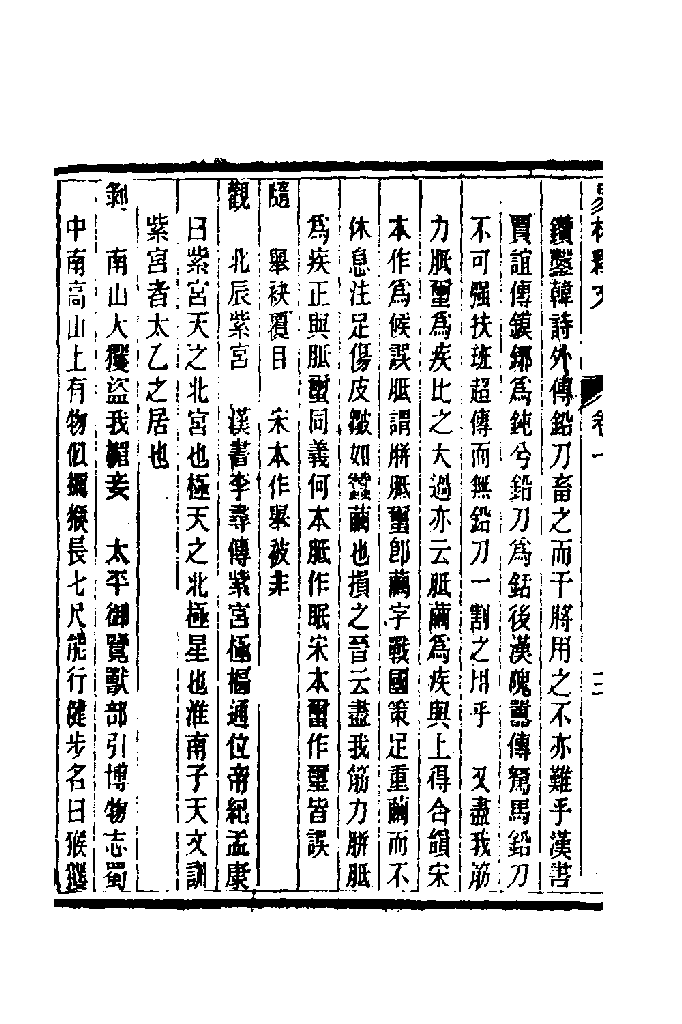 易林釋文 卷一 三
鑽鑿韓詩外傳鉛刀畜之而干將用之不亦難乎漢書
賈誼傳鏌鋣爲鈍兮鉛刀爲銛後漢隗囂傳駑馬鉛刀
不可强扶班超傳而無鉛刀一割之用乎 又盡我筋
力胝璽爲疾比之大過亦云胝繭爲疾與上得合韻宋
本作爲候誤胝謂胼胝璽卽繭字戰國策足重繭而不
休息注足傷皮皺如蠶繭也損之晉云盡我筋力胼胝
爲疾正與胝璽同義何本胝作眠宋本璽作璽皆誤
隨 舉袂覆目 宋本作舉被非
觀 北辰紫宮 漢書李尋傳紫宮極樞通位帝紀孟康
曰紫宮天之北宮也極天之北極星也淮南子天文訓
紫宮者太乙之居也
剝 南山大玃盜我媚妾 太平御覽獸部引博物志蜀
中南高山上有物似獼猴長七尺能行健步名曰猴玃